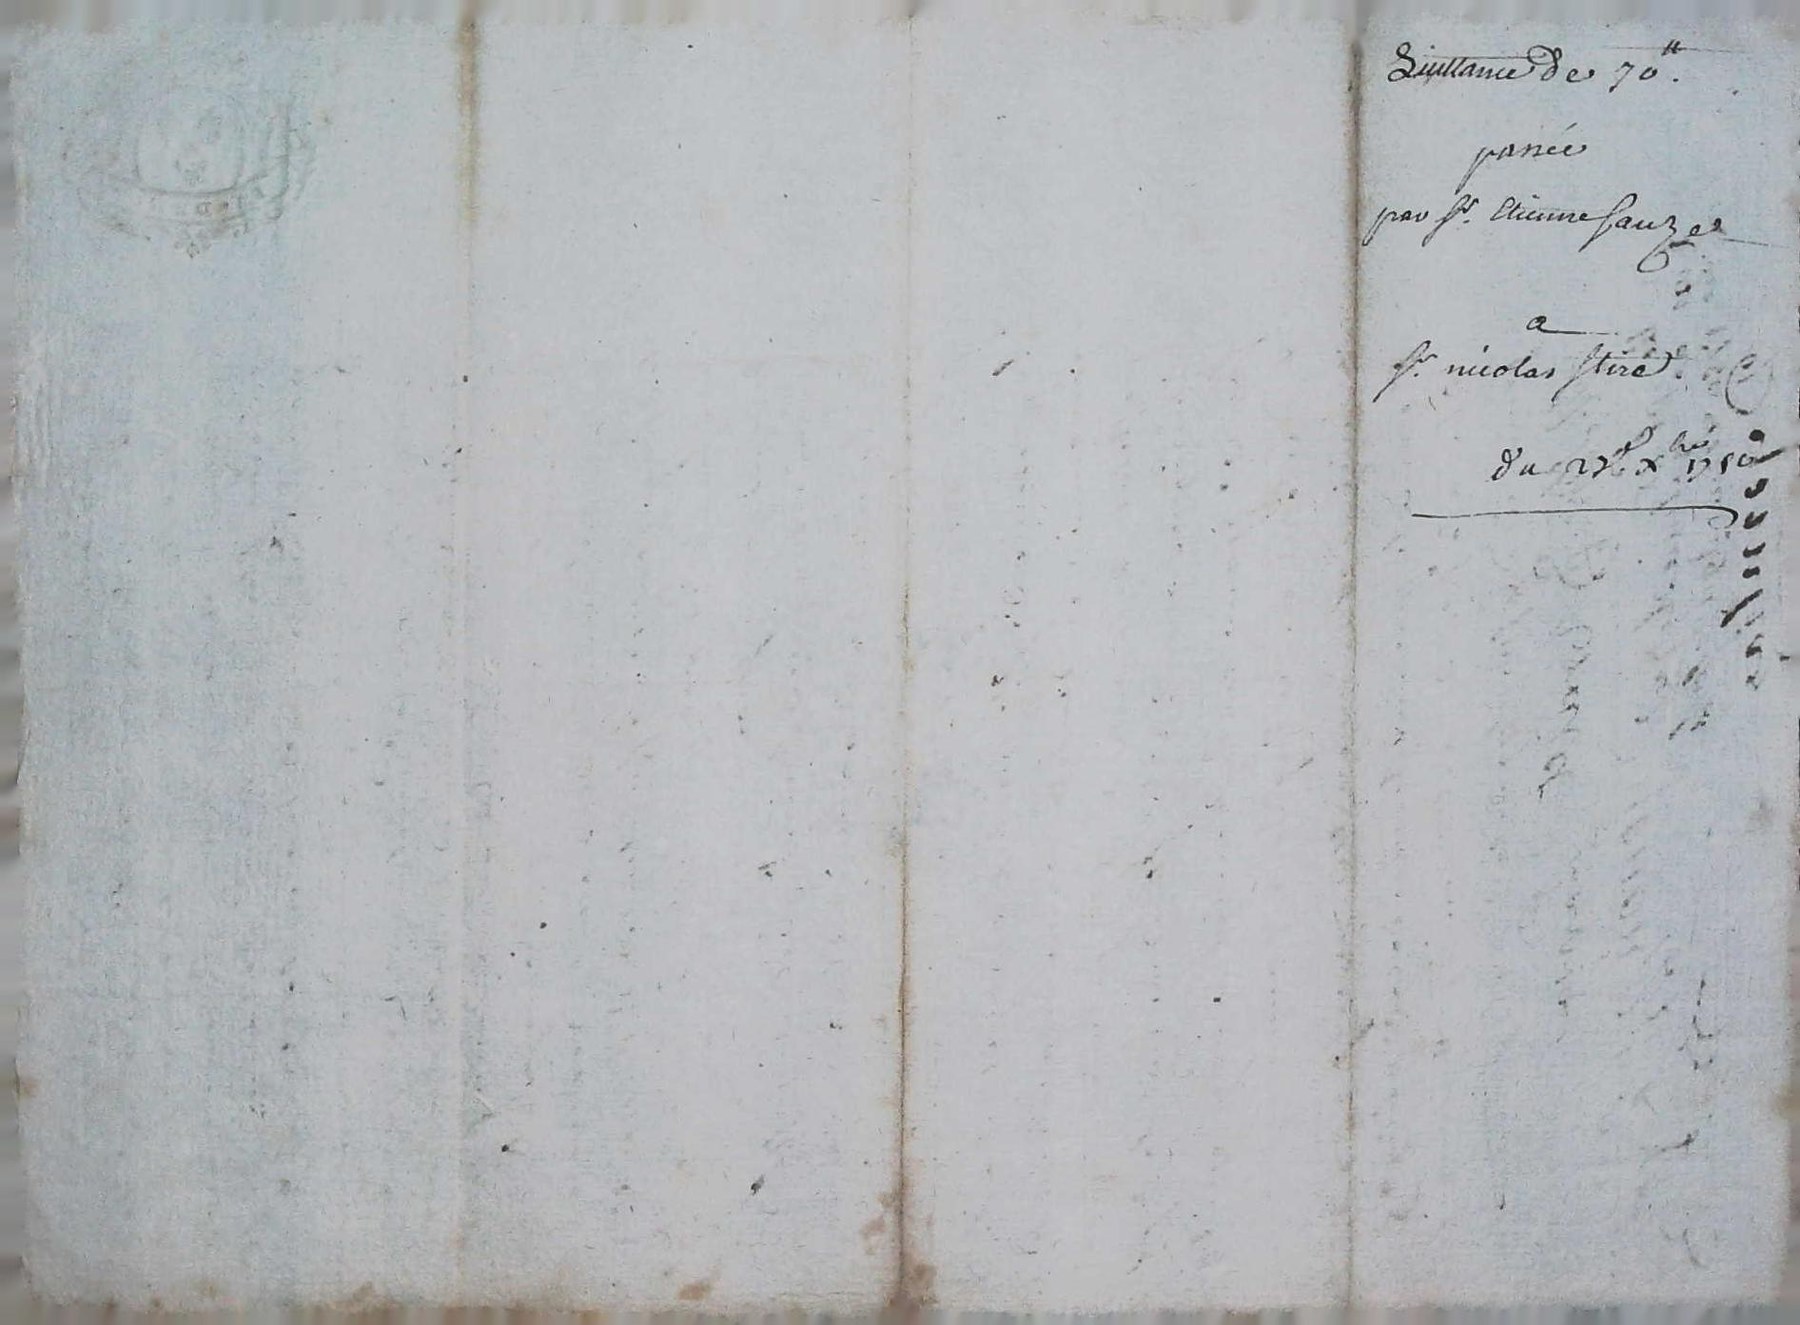 Quittance de 70ᵗᵗ.
passée
par Sʳ. Etienne Sauzes
a
Sʳ. nicolas Stire
du xbre 1780